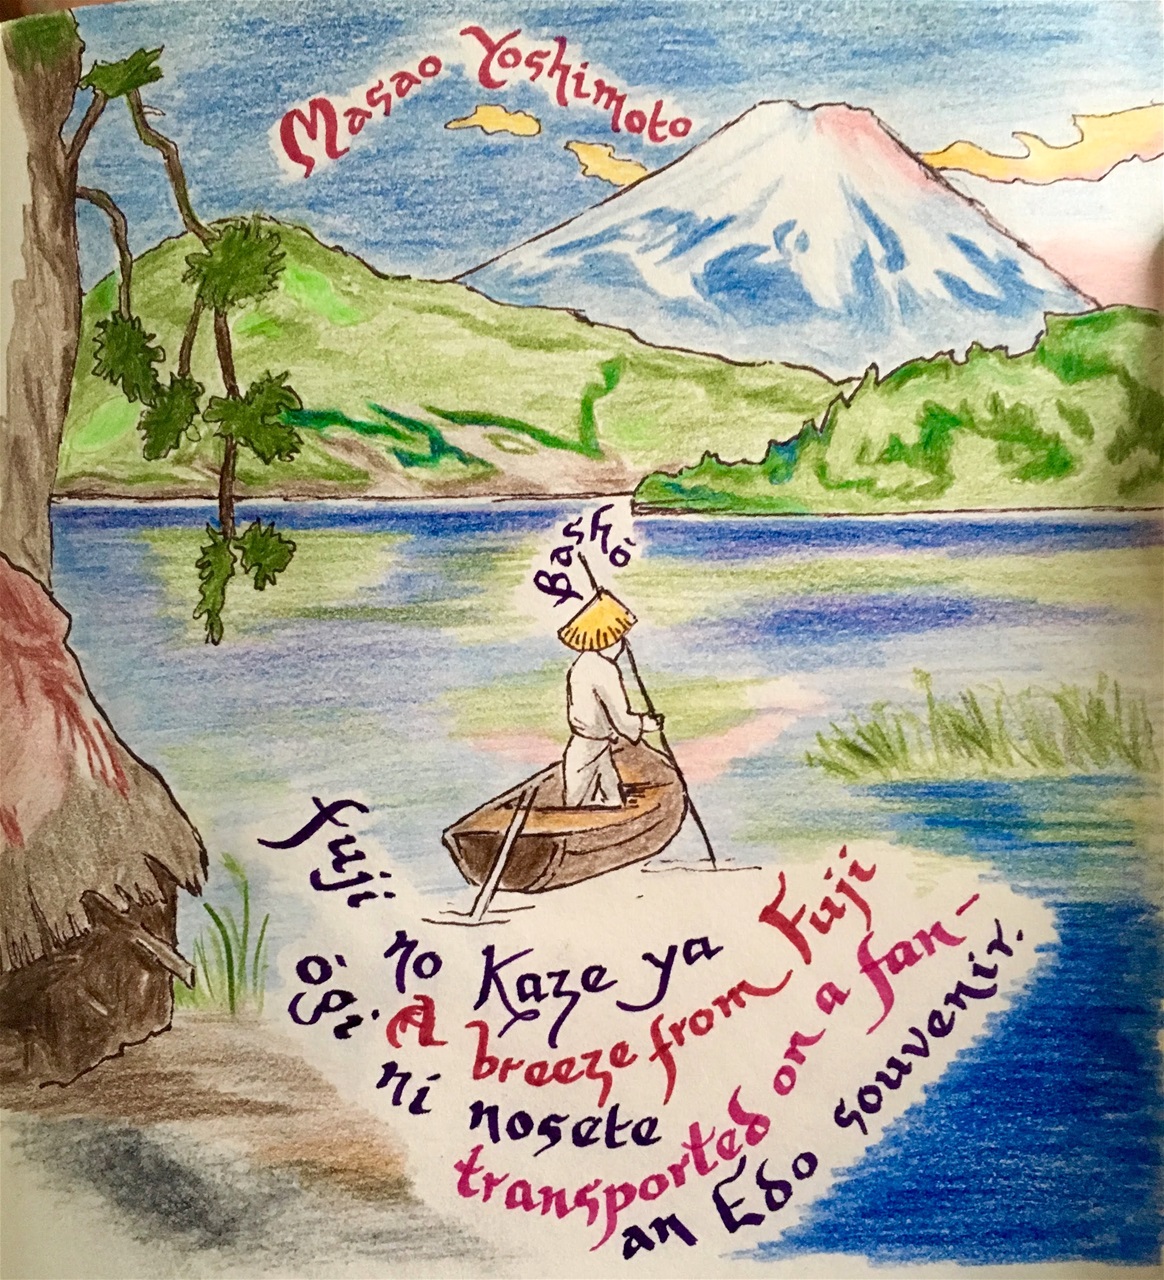 Masao Yoshimoto
Bashò
Fuji no Kaze ya
A breeze from Fuji
ògi ni nosete
transported on a fan-
an Edo souvenir.